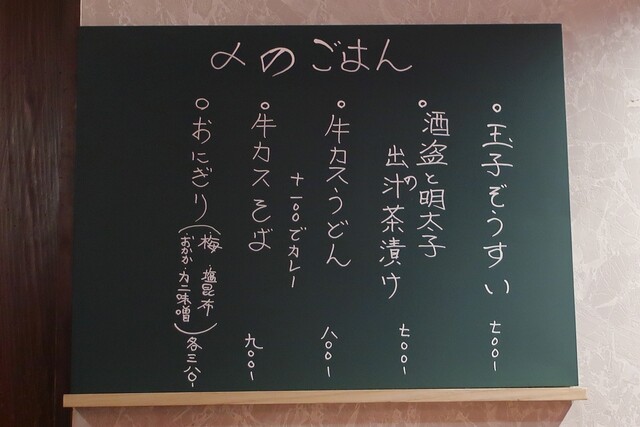 〆のごはん
○玉子ぞうすい 七〇〇-
○酒盗と明太子の
出汁茶漬け 七〇〇-
○牛カスうどん 八〇〇-
+一〇〇でカレー
○牛カスそば 九〇〇-
○おにぎり(梅 塩昆布
おかか・カニ味噌)各三八〇-